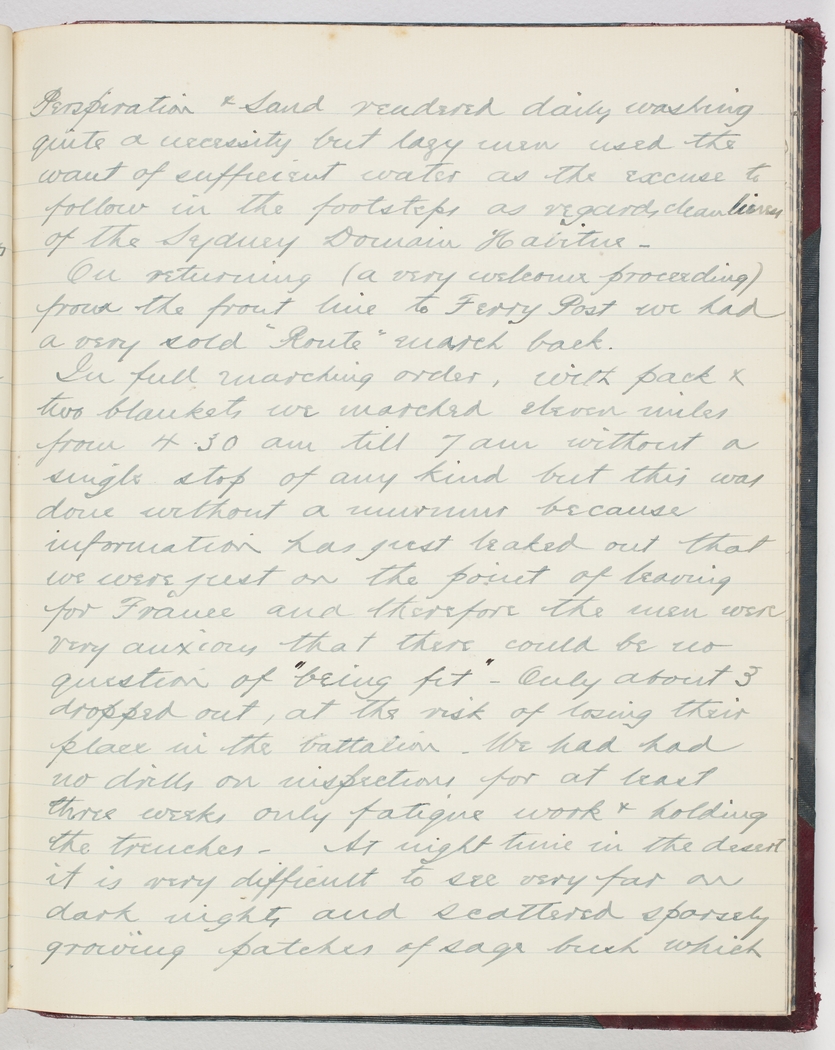 Perspiration & Sand rendered daily washing
quite a necessity but lazy men used the
want of sufficient water as the excuse to
follow in the footsteps as regards cleanliness
of the Sydney Domain Habitue -
On returning (a very welcome proceeding)
from the front line to Ferry Post we had
a very sold "Route" march back.
In full marching order, with pack &
two blankets we marched eleven miles
from 4.30 am till 7 am without a
single stop of any kind but this was
done without a murmur because
information has just leaked out that
we were just on the point of leaving
for France and therefore the men were
very anxious that there could be no
question of "being fit" - Only about 3
dropped out, at the risk of losing their
place in the battalion - We had had
no drills or inspections for at least
three weeks only fatigue work & holding
the trenches - At night time in the desert
it is very difficult to see very far on
dark nights and scattered sparsely
growing patches of sage bush which